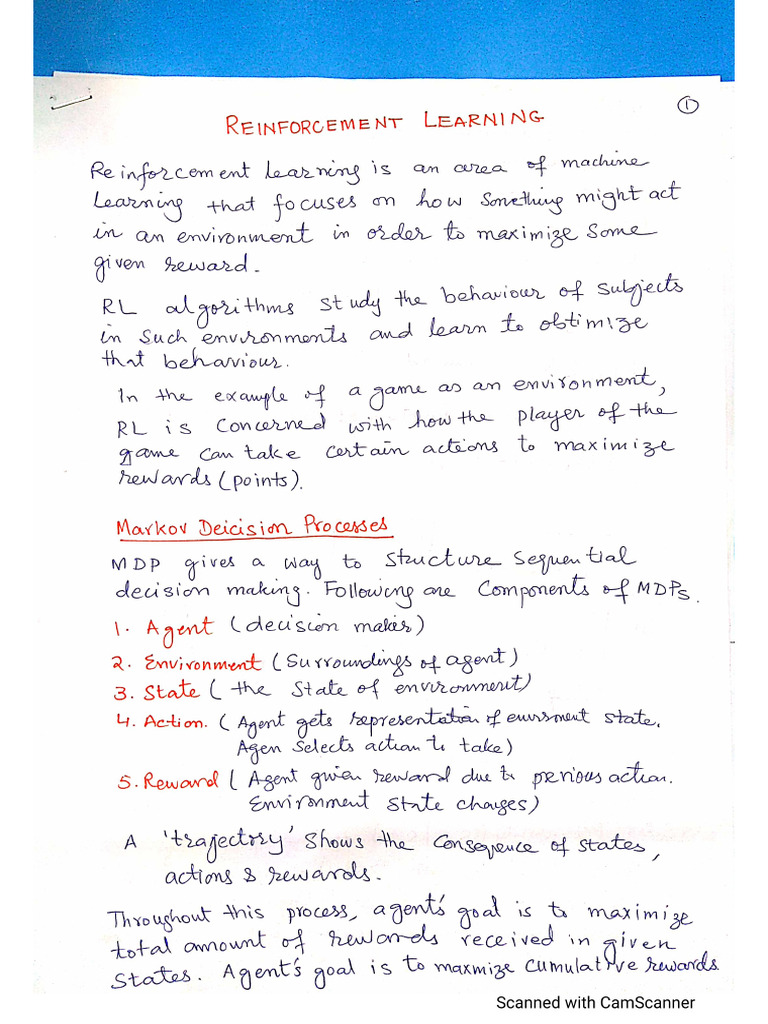 1
REINFORCEMENT LEARNING
Reinforcement learning is an area of machine
Learning that focuses on how something might act
in an environment in order to maximize some
given reward.
RL algorithms study the behaviour of subjects
in such environments and learn to obtimize
that behaviour.
In the example of a game as an environment,
RL is concerned with how the player of the
game can take certain actions to maximize
rewards (points).
Markov Deicision Processes
MDP gives a way to structure sequential
decision making. Following are components of MDPs.
1. Agent (decision maker)
2. Environment (Surroundings of agent)
3. State (the state of environment)
4. Action. (Agent gets representation of envirment state.
Agen selects action to take)
5. Reward (Agent given reward due to previous action.
Environment state changes)
A 'trajectory' shows the consequence of states,
actions & rewards.
Throughout this process, agent's goal is to maximize
total amount of rewards received in given
states. Agent's goal is to maxmize cumulative rewards
Scanned with CamScanner